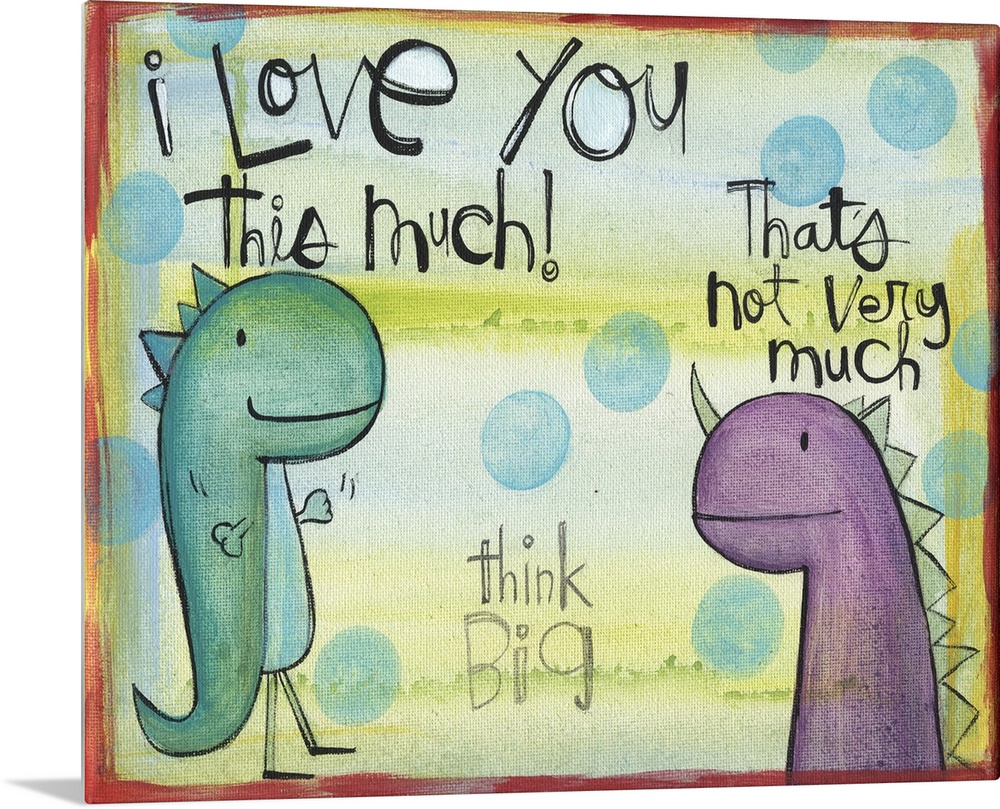 i Love You
This much!
That's
not Very
much
think
Big